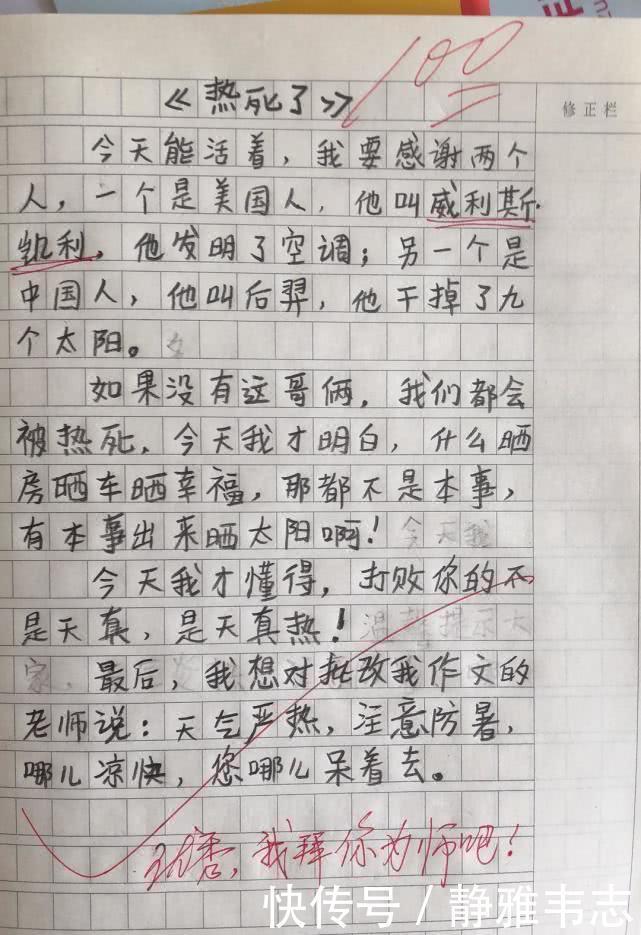 100
《热死了》
修正栏
今天能活着，我要感谢两个
人，一个是美国人，他叫威利斯·
凯利，他发明了空调；另一个是
中国人，他叫后羿，他干掉了九
个太阳。
如果没有这哥俩，我们都会
被热死，今天我才明白，什么晒
房晒车晒幸福，那都不是本事，
有本事出来晒太阳啊！今天我
今天我才懂得，打败你的不
是天真，是天真热！温馨提示大
家，最后，我想对批改我作文的
老师说：天气严热，注意防暑，
哪儿凉快，您哪儿呆着去。
优秀，我拜你为师吧！
快传号/静雅韦志